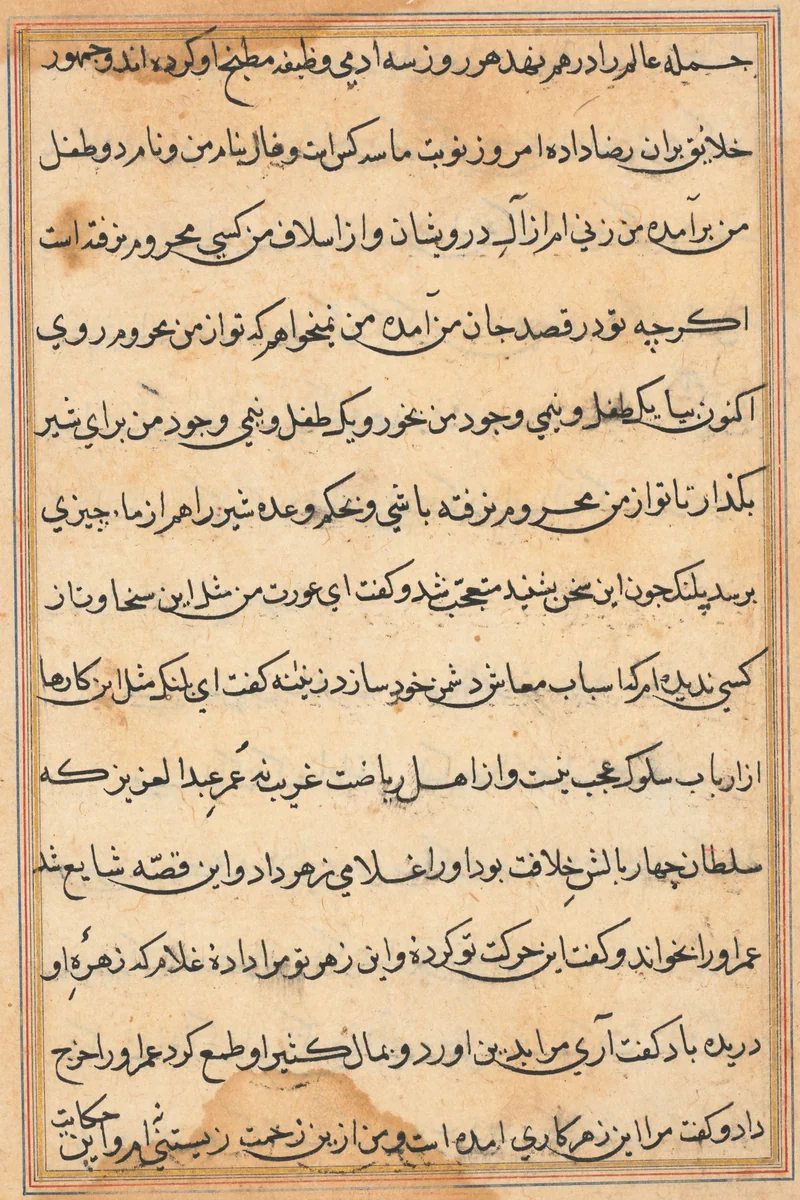 جمله عالم را درهم نهد هر روز سه ادمي وظيفه مطبخ او كرده اند و جمهور
خلايق بران رضا داده امروز نوبت ما سه كس است و فال بنام من و نام دو طفل
من برآمده من زني ام از آلِ درويشان و از اسلاف من كسي محروم نرفته است
اكرچه تو در قصد جان من آمده من نميخواهم كه تو از من محروم روي
اكنون بيا يك طفل و نيمي وجود من بخور و يك طفل و نيمي وجود من براي شير
بكذار تا تو از من محروم نرفته باشي و بحكم وعده شير را هم از ما چيزي
برسد پلنك جون اين سخن بشنيد متعجّب شد و كفت اي عورت من مثل اين سخاوت از
كسي نديده ام كه اسباب معاش دشمن خود سازد زينّه كفت اي پلنك مثل اين كارها
از ارباب سلوك عجب نيست و از اهل رياضت غريب نه عُمرِ عبد العزيز كه
سلطان چهار بالشِ خِلافت بود او را غلامي زهر داد و اين قصّه شايع شد
عمر او را بخواند و كفت اين حركت تو كردۀ و اين زهر تو مرا دادۀ غلام كه زهرۀِ او
دريده باد كفت آري مرا بدين اورد و بمال كثير او طمع كرد عمر او را خرج
داد و كفت مرا اين زهر كاري امده است و من ازين زحمت زيستني نه ام و اين حكايت